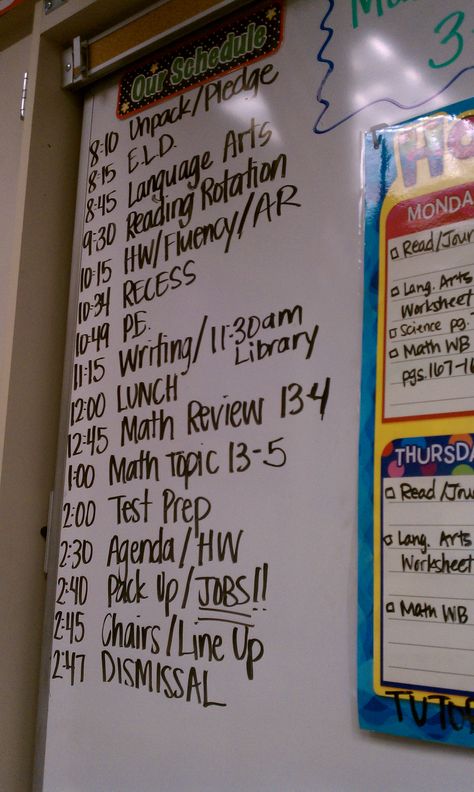 Our Schedule
8:10 Unpack/Pledge
8:15 E.L.D.
8:45 Language Arts
9:30 Reading Rotation
10:15 HW/Fluency/AR
10:34 RECESS
10:49 P.E.
11:15 Writing/11:30am
Library
12:00 LUNCH
12:45 Math Review 13-4
1:00 Math Topic 13-5
2:00 Test Prep
2:30 Agenda/HW
2:40 Pack Up/JOBS!!
2:45 Chairs/Line Up
2:47 DISMISSAL
MONDA
Read/Jour
Lang. Arts
Worksheet
Science pg.
Math WB
pgs.167-16
THURSDA
Read/Jou
Lang. Arts
Worksheet
Math WB
TUTO